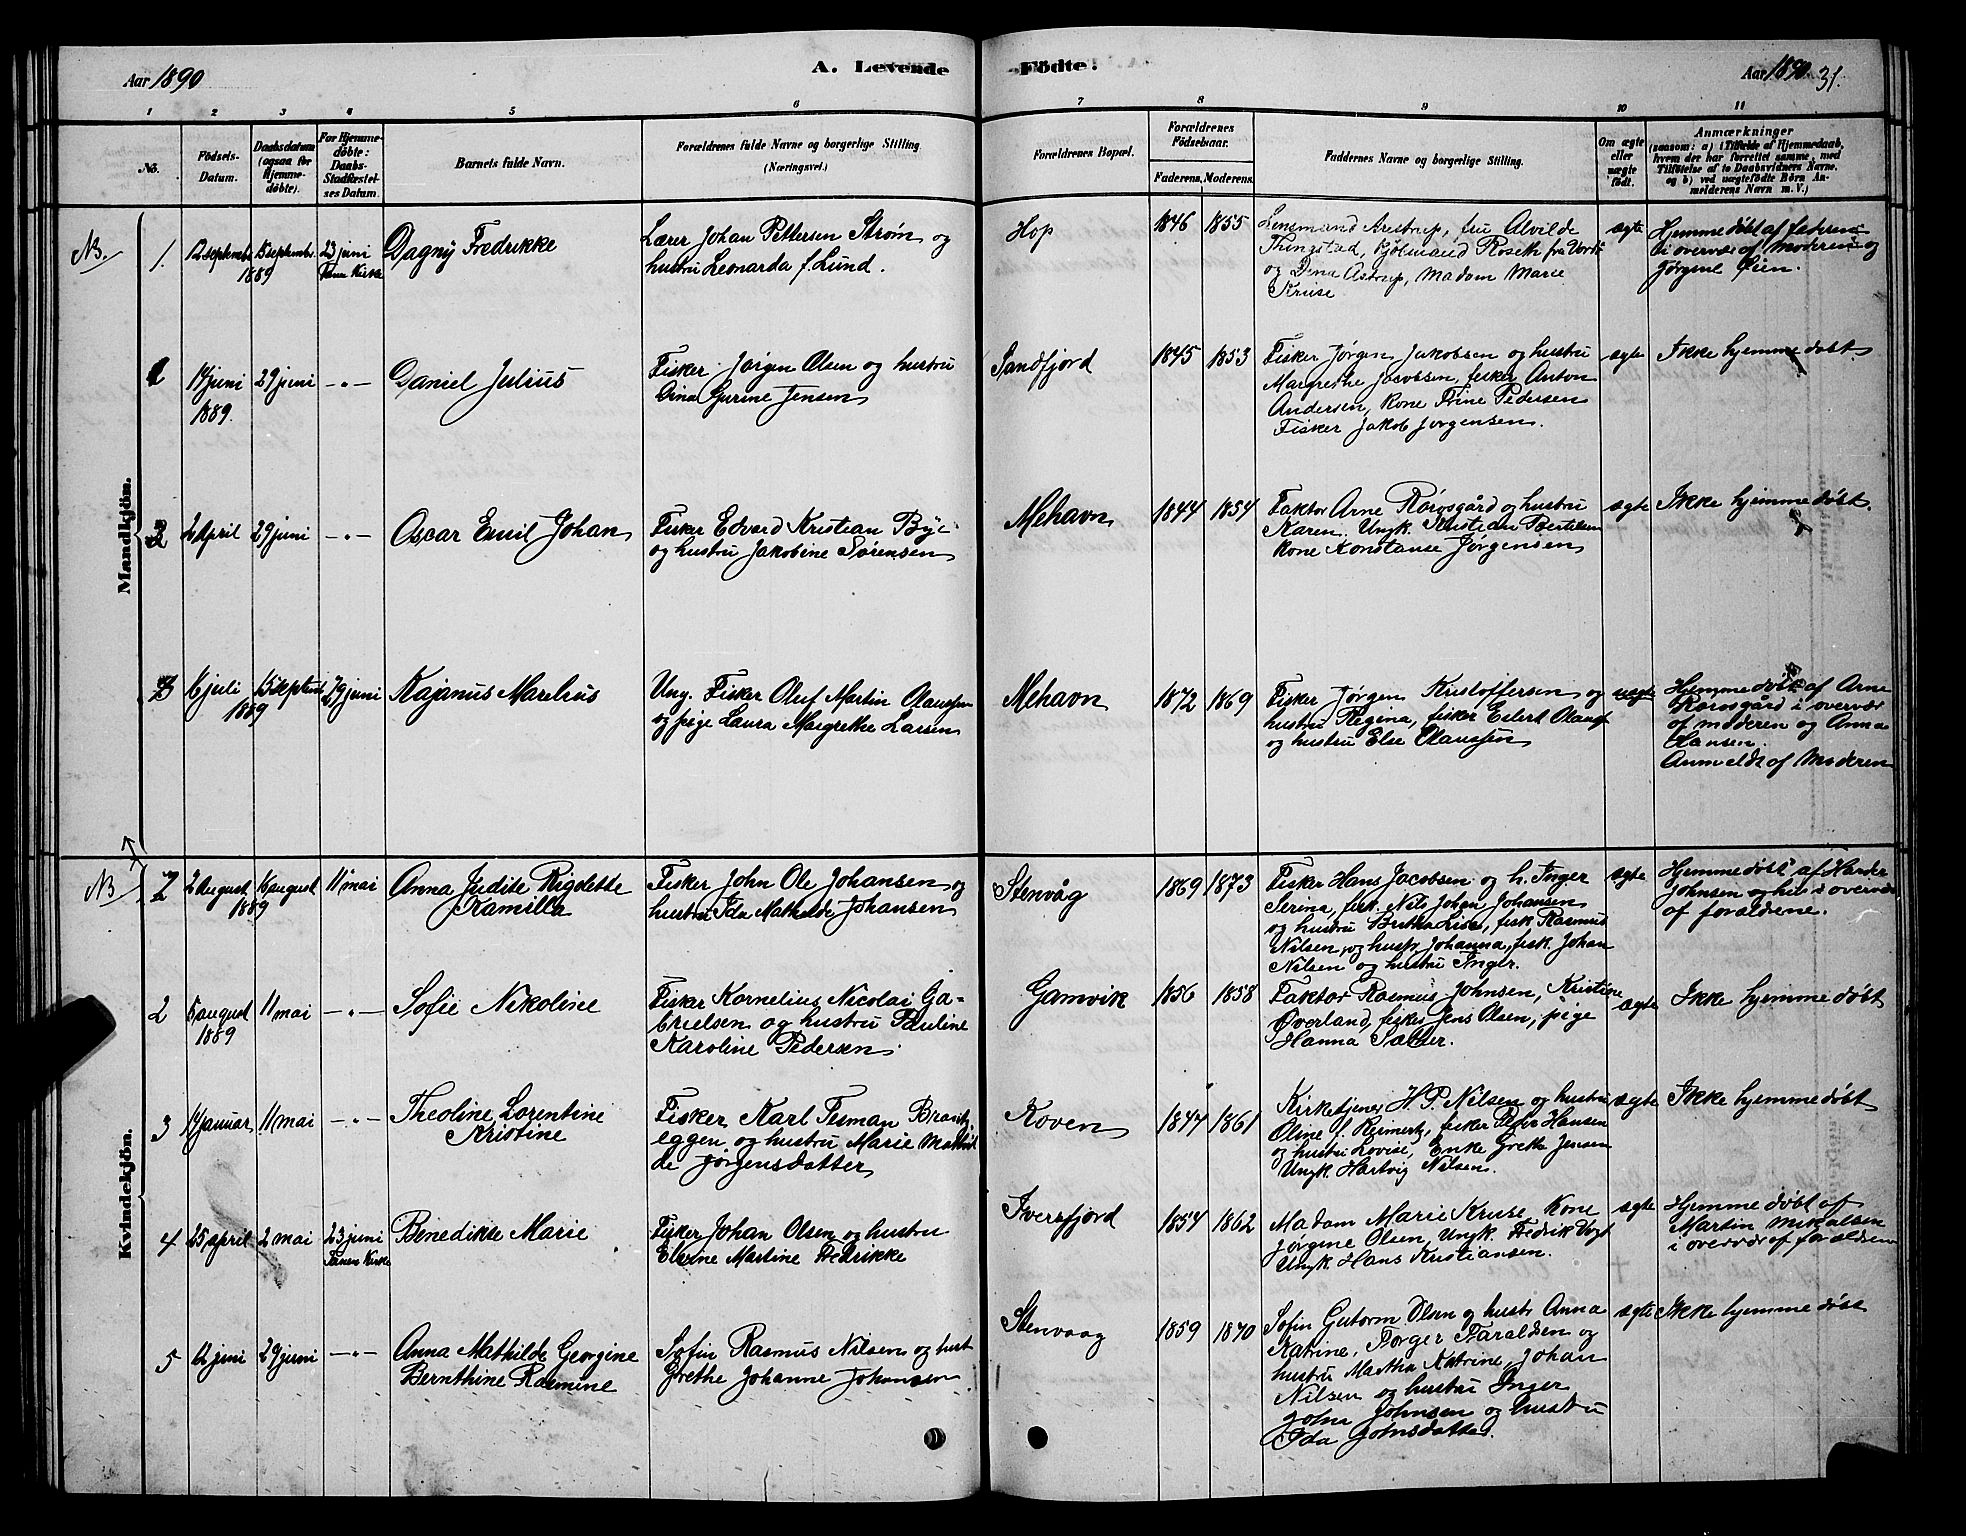 Aar 1890
A. Levende
Födte.
Aar 1890. 31.
1 2 3 4 5 6 7 8 9 10 11
No.
Födsels-
Datum.
Daabsdatum
(ogsaa for
Hjemme-
döbte).
For Hjemme-
döbte:
Daabs-
Stadfæstel-
ses Datum.
Barnets fulde Navn.
Forældrenes fulde Navne og borgerlige Stilling
(Næringsvei).
Forældrenes Bopæl.
Forældrenes
Födselsaar.
Faderens. Moderens.
Faddernes Navne og borgerlige Stilling.
Om ægte
eller
uægte
födt.
Anmærkninger
(saasom: a) i Tilfælde af Hjemmedaab,
hvem der har forrettet samme, med
Tilföielse af to Daabsvidners Navne.
og b) ved uægtefödte Börn An-
melderens Navn m. V.)
Mandkjön.
NB.
1. 12 septembr 15 septembr. 23 juni
1889 Tanen Kirke
Dagny Fredrikke
Lærer Johan Pettersen Strøm og
hustru Leonarda f. Lund.
Hop
1846 1855
Lensmand Astrup, fru Alvilde
Thingstad, Kjøbmand Roseth fra Vardø
og Dina Astrup, Madam Marie
Kruse
ægte
Hjemmedøbt af faderen
i overvær af Moderen og
Jørgine Øien.
2 14 juni 29 juni -"-
1889.
Daniel Julius
Fisker Jørgen Olsen og hustru
Dina Gurine Jensen
Sandfjord
1845 1853
Fisker Jørgen Jakobsen og hustru
Margrethe Jacobsen, fisker Anton
Andersen, Kone Trine Pedersen
Fisker Jakob Jørgensen.
ægte
Ikke hjemmedøbt
3 2 April 29 juni -"-
Oscar Emil Johan
Fisker Edvard Kristian Bye
og hustru Jakobine Sørensen
Mehavn
1844 1854
Faktor Arne Rørosgård og hustru
Karen. Ungk. Kristian Bertelsen
Kone Konstanse Jørgensen
ægte
Ikke hjemmedøbt.
6 juli 15 septemb 29 juni
1889
Kajanus Marelius
Ung. Fisker Oluf Martin Olaussen
og pige Laura Margrethe Larsen
Mehavn
1872 1869
Fisker Jørgen Kristoffersen og
hustru Regina, fisker Eilert Olauss
og hustru Else Olaussen
uægte
Hjemmedøbt af Arne
Rørosgård i overvær
af moderen og Anna
Hansen.
Anmeldt af Moderen
Kvindekjön.
NB
2 August 16 august 11 mai
1889
Anna Judite Rigolette
Kamilla
Fisker John Ole Johansen og
hustru Ida Mathilde Johansen
Stenvåg
1869 1873
Fisker Hans Jacobsen og h. Inger
Serina, fisk. Nils Johan Johansen
og hustru Britha Lisa, fisk. Rasmus
Nilsen og hustr. Johanna, fisk. Johan
Nilsen og hustru Inger.
ægte
Hjemmedøbt af
Johnsen og i overvær
af forældrene.
2 5 august 11 mai -"-
1889
Sofie Nikoline
Fisker Kornelius Nicolai Ga-
brielsen og hustru Pauline
Karoline Pedersen
Gamvik
1856 1858
Faktor Rasmus Johnsen, Kristine
Øverland, fisker Jens Olsen, pige
Hanna Sæther.
ægte
Ikke hjemmedøbt
3 14 januar 11 mai -"-
Theoline Lorentine
Kristine
Fisker Karl Tesman Brant-
eggen og hustru Marie Mathil
de Jørgensdatter
Koven
1847 1861
Kirketjener H. P. Nilsen og hustru
Oline f. Reimertz, fisker Peder Hansen
og hustru Lovise, Enke Grethe Jensen
Ungk. Hartvig Nilsen.
ægte
Ikke hjemmedøbt
4 25 april 2 mai 23 juni
Tanen Kirke
Benedikte Marie
Fisker Johan Olsen og hustru
Elvine Martine Fredrikke
Iversfjord
1854 1862
Madam Marie Kruse Kone
Jørgine Olsen, Ungk. Fredrik Vogt
Ungk. Hans Kristiansen.
ægte
Hjemmedøbt af
Martin Mikalsen
i overvær af forældrene
5 12 juni 29 juni -"-
Anna Mathilde Georgine
Bernthine Rasmine
Sofin Rasmus Nilsen og hust
Grethe Johanne Johansen
Stenvaag
1859 1870
Sofin Gutorm Olsen og hustr Anna
Katrine, Torger Haraldsen og
hustru Martha Katrine, Johan
Nilsen og hustru Inger
John Johnsen og hustru
Ida Johnsdatter.
ægte
Ikke hjemmedøbt